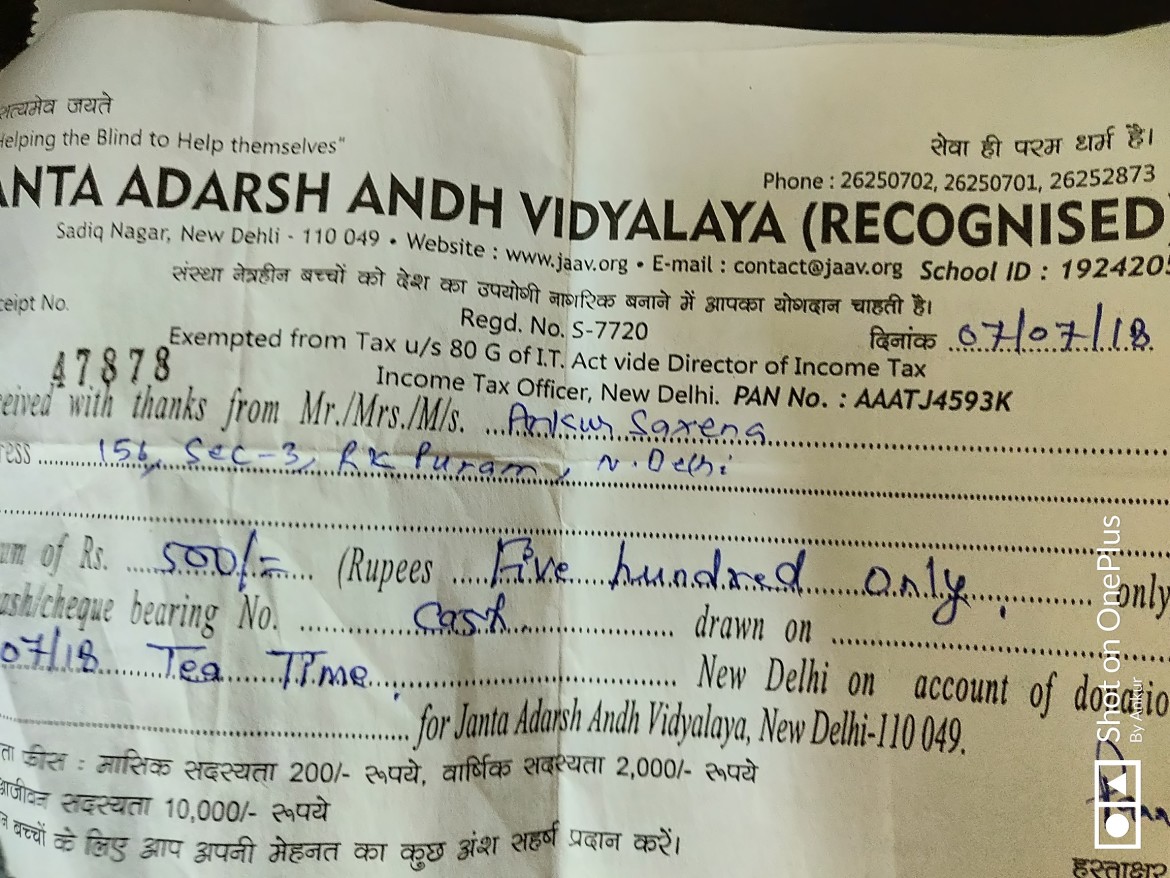 सत्यमेव जयते
Helping the Blind to Help themselves"
सेवा ही परम धर्म है।
Phone : 26250702, 26250701, 26252873
ANTA ADARSH ANDH VIDYALAYA (RECOGNISED)
Sadiq Nagar, New Dehli - 110 049 • Website : www.jaav.org • E-mail : contact@jaav.org School ID : 1924205
संस्था नेत्रहीन बच्चों को देश का उपयोगी नागरिक बनाने में आपका योगदान चाहती है।
ceipt No.
Regd. No. S-7720
दिनांक 07/07/18
47878
Exempted from Tax u/s 80 G of I.T. Act vide Director of Income Tax
Income Tax Officer, New Delhi. PAN No. : AAATJ4593K
eived with thanks from Mr./Mrs./M/s. Ankur Saxena
ress 156, Sec-3, RK Puram, N. Delhi
um of Rs. 500/= (Rupees Five hundred only. only
ash/cheque bearing No. Cash drawn on
07/18 Tea Time. New Delhi on account of donatio
for Janta Adarsh Andh Vidyalaya, New Delhi-110 049.
ता फीस : मासिक सदस्यता 200/- रूपये, वार्षिक सदस्यता 2,000/- रूपये
आजीवन सदस्यता 10,000/- रूपये
न बच्चों के लिए आप अपनी मेहनत का कुछ अंश सहर्ष प्रदान करें।
हस्ताक्षर
Shot on OnePlus
By Ankur